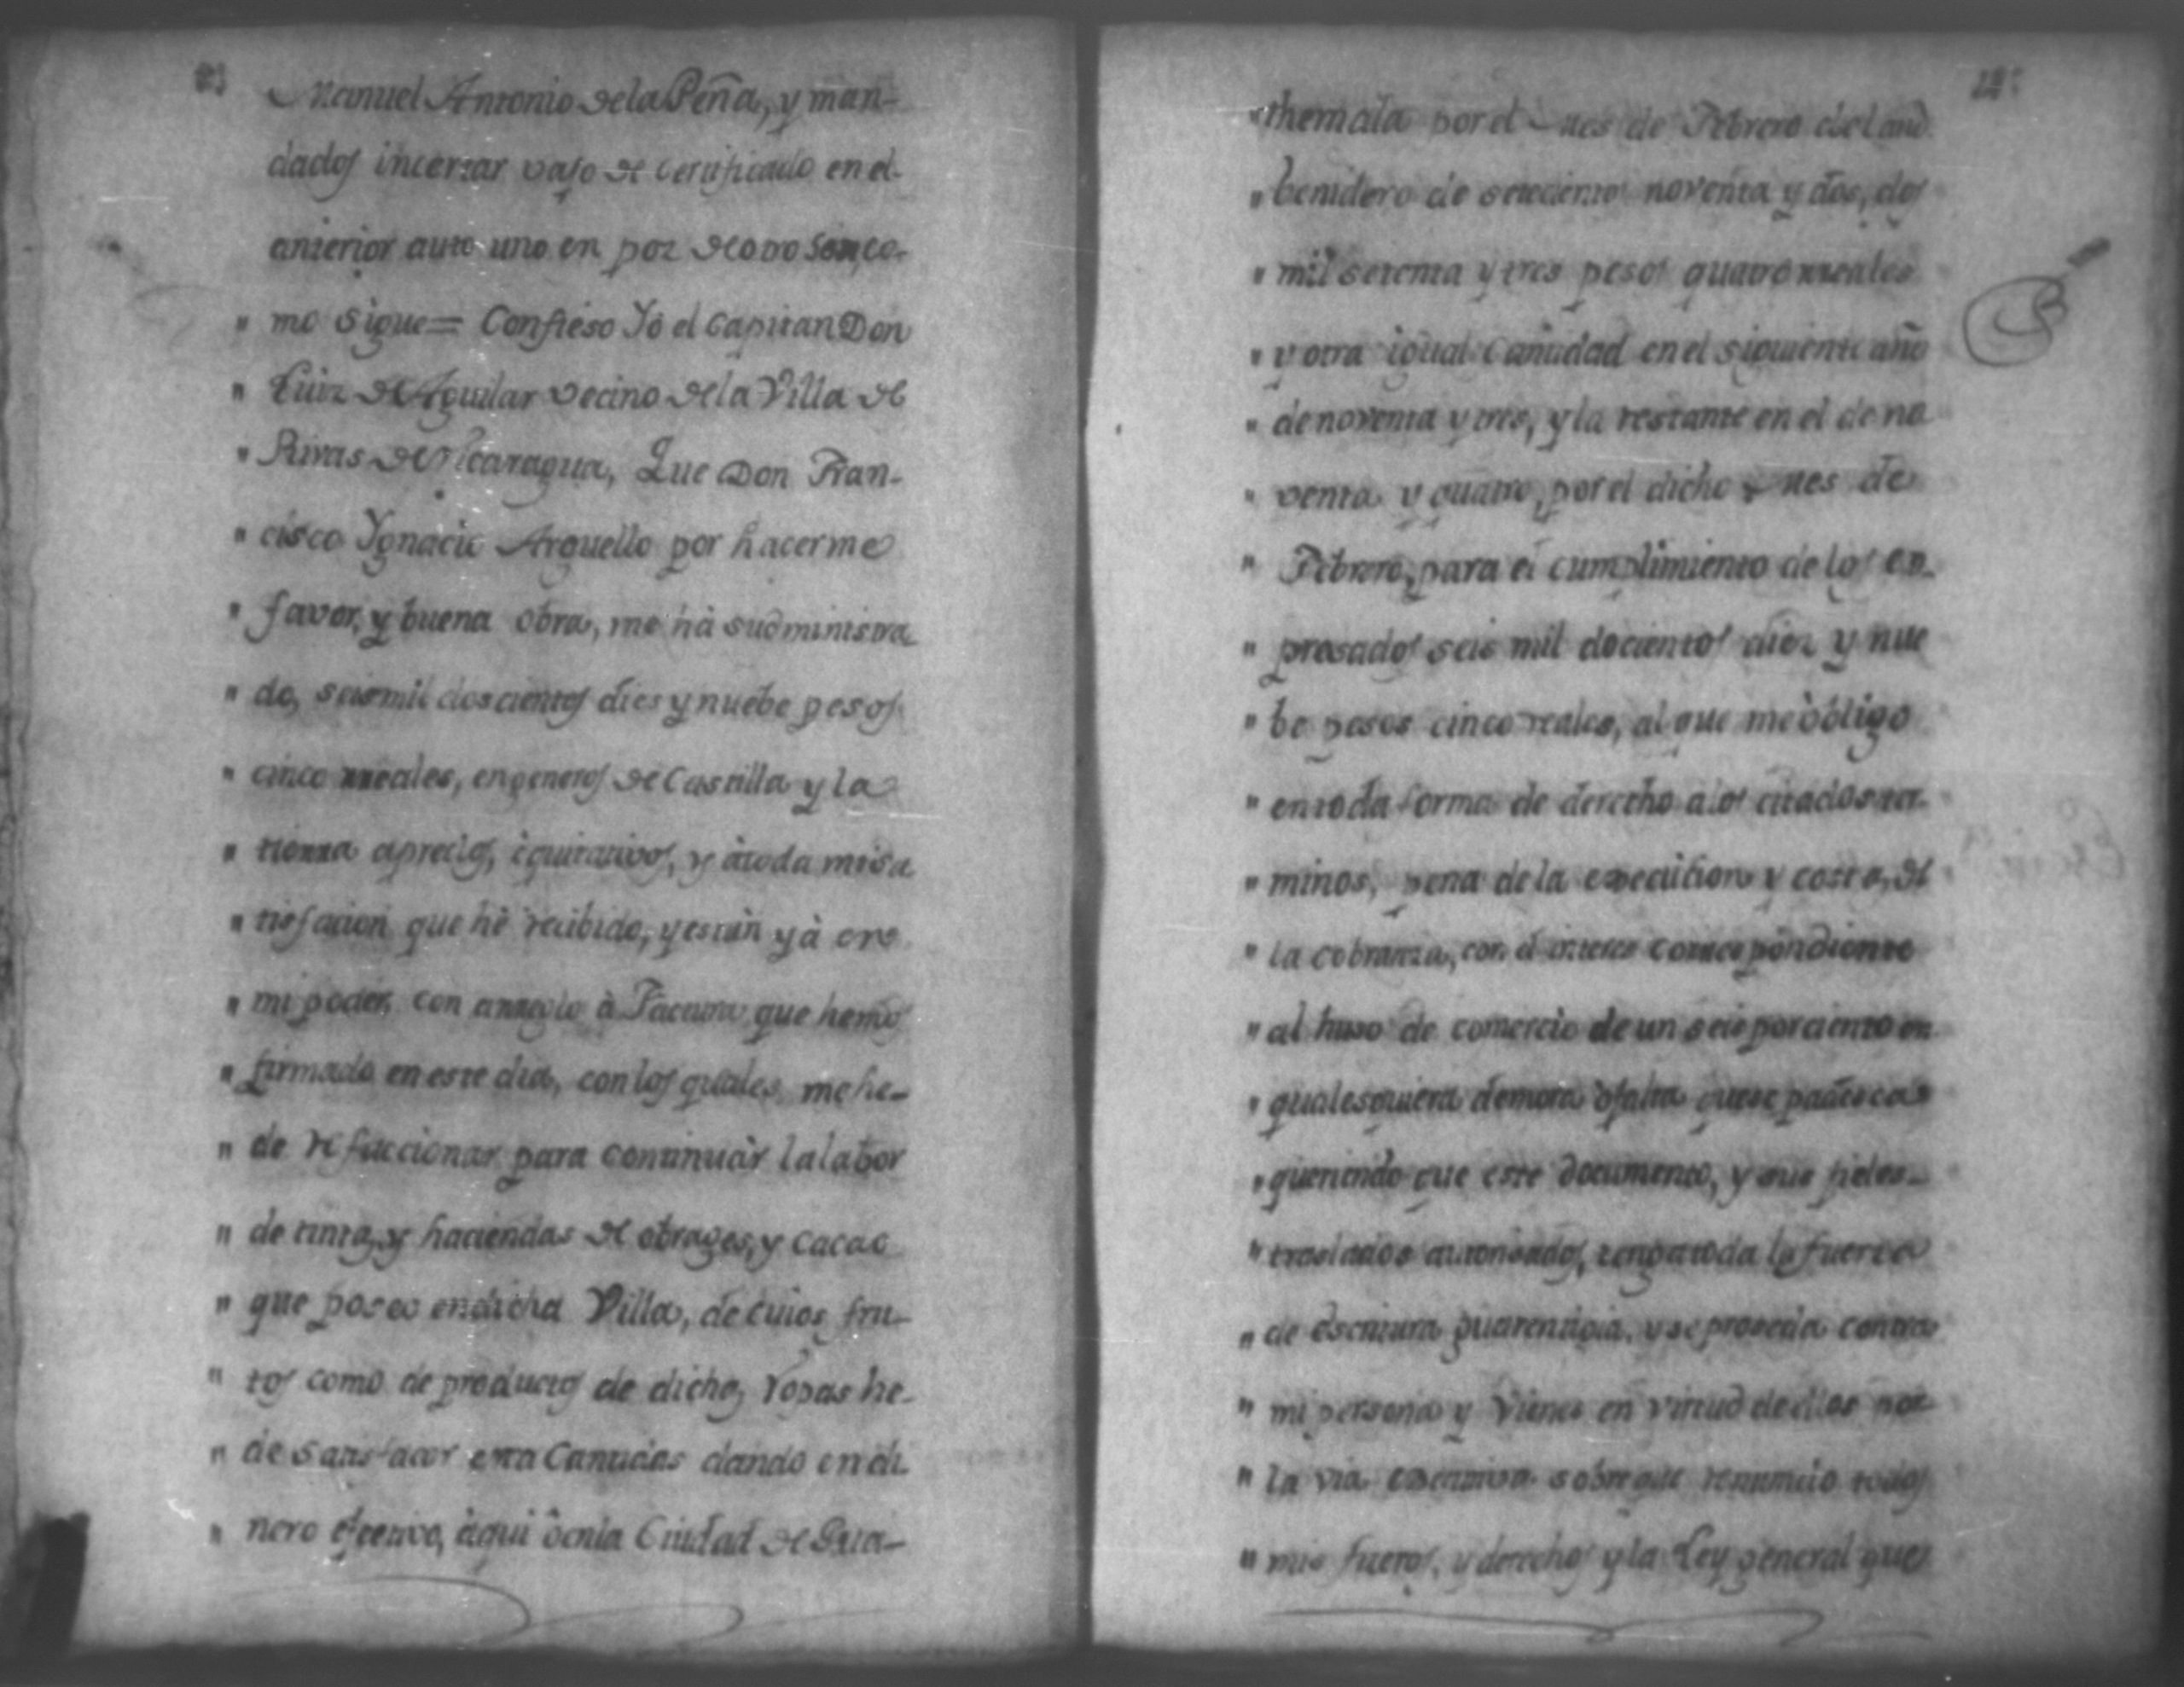 Manuel Antonio de la Peña, y man-
dados incertar vajo de certificado en el
anterior auto uno en poz de otro son, co-
" mo sigue = Confieso Yo el Capitan Don
" Luiz de Aguilar vecino de la Villa de
" Rivas de Nicaragua, Que Don Fran-
" cisco Ygnacio Arguello por hacerme
" favor, y buena obra, me hà sudministra
" do, seis mil doscientos dies y nuebe pesos
" cinco rreales, en generos de Castilla y la
" tierra a precios, equitativos, y à toda mi sa
" tisfacion que hè recibido, y están yà en
" mi poder, con arreglo à Factura que hemos
" firmado en este dia, con los quales me he-
" de refaccionar para continuàr la labor
" de tinta, y haciendas de obrages, y cacao
" que poseo en dicha Villa, de cuios fru-
" tos como de productos de dichas Ropas he-
" de satisfacer esta Cantidas dando en di
" nero efectivo, àqui ò en la Ciudad de Gua-
" themala por el mes de Febrero del año
" benidero de setecientos noventa y dos, dos
" mil setenta y tres pesos quatro rreales
" y otra igual Cantidad en el siguiente año
" de noventa y tres, y la restante en el de no
" venta y quatro, por el dicho mes de
" Febrero, para el cumplimiento de los ex-
" presados seis mil docientos diez y nue
" be pesos cinco reales, al que me òbligo
" en toda forma de derecho a los citados ter-
" minos, pena de la execution y costas, de
" la cobranza, con el interes correspondiente
" al huso de comercio de un seis por ciento en
" qualesquiera demora ò falta que se padesca
" queriendo que este documento, y sus fieles
" traslados autorisados, tenga toda la fuerza
" de escritura guarentigia, y se proceda contra
" mi persona y Vienes en virtud de ellos por
" la via executiva sobre que renuncio todos
" mis fueros, y derechos y la Ley general que